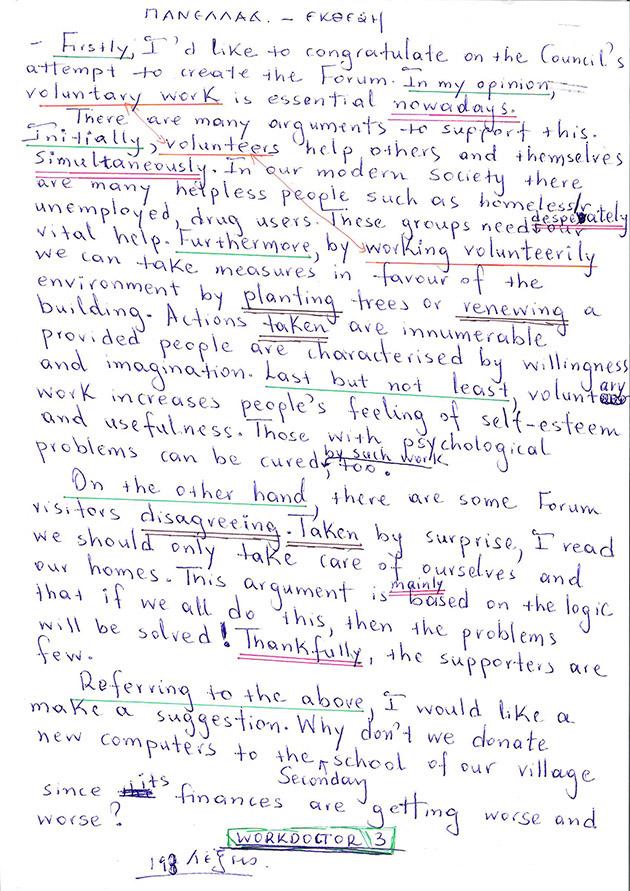 ΠΑΝΕΛΛΑΔ. - ΕΚΘΕΣΗ
- Firstly, I'd like to congratulate on the Council's
attempt to create the Forum. In my opinion,
voluntary work is essential nowadays.
There are many arguments to support this.
Initially, volunteers help others and themselves
simultaneously. In our modern society there
are many helpless people such as homeless,
unemployed, drug users. These groups need desperately our
vital help. Furthermore, by working volunteerily
we can take measures in favour of the
environment by planting trees or renewing a
building. Actions taken are innumerable
provided people are characterised by willingness
and imagination. Last but not least, voluntary
work increases people's feeling of self-esteem
and usefulness. Those with psychological
problems can be cured by such work, too.
On the other hand, there are some Forum
visitors disagreeing. Taken by surprise, I read
we should only take care of ourselves and
our homes. This argument is mainly based on the logic
that if we all do this, then the problems
will be solved! Thankfully, the supporters are
few.
Referring to the above, I would like a
make a suggestion. Why don't we donate
new computers to the Secondary school of our village
since its finances are getting worse and
worse?
WORKDOCTOR 3
198 λέξεις.